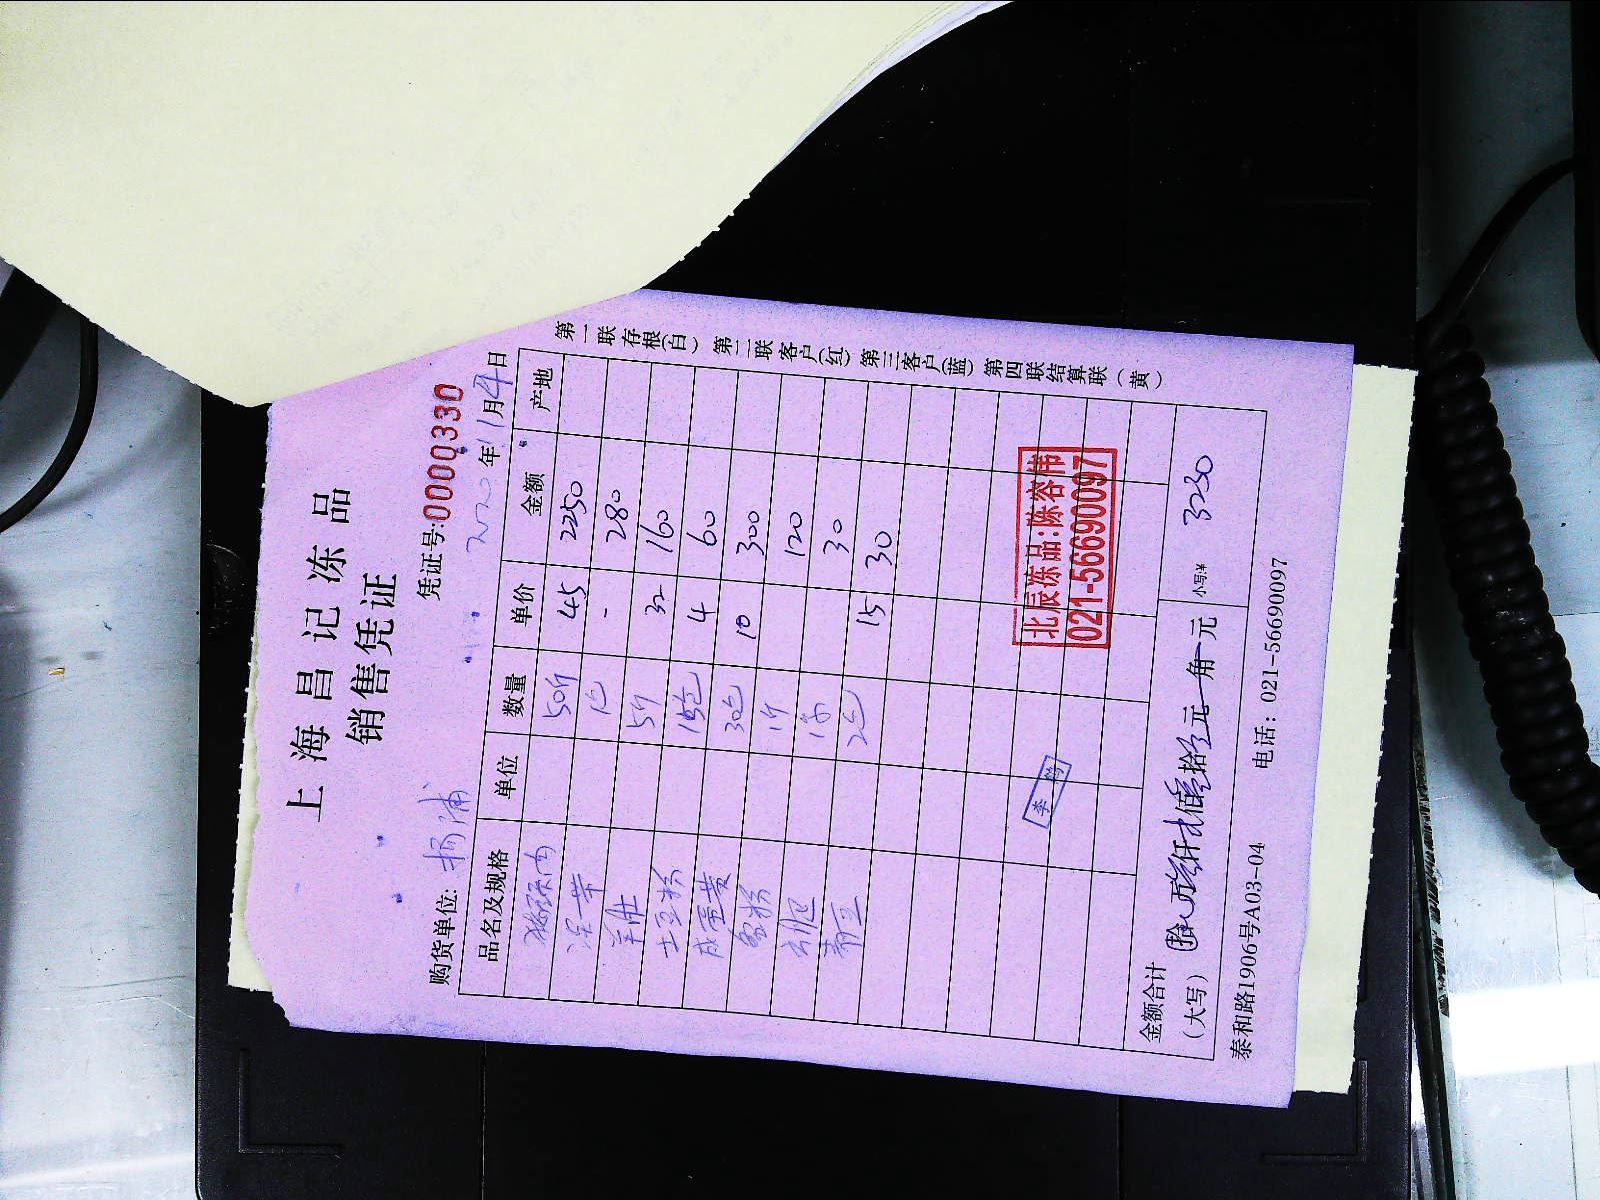 上海昌记冻品
销售凭证
凭证号:0000330
购货单位: 杨浦
2020年11月4日
品名及规格 单位 数量 单价 金额 产地
50斤 45 2250
1包 - 280
羊肚 5斤 32 160
土豆粉 15包 4 60
咸蛋黄 30包 10 300
鱼粉 1斤 120
30
青豆 2包 15 30
北辰冻品:陈容伟
021-56690097
金额合计
(大写) 拾 万 叁仟 贰佰 叁拾 元 角 元 小写:¥ 3230
泰和路1906号A03-04 电话: 021-56690097
第一联存根(白) 第二联客户(红) 第三客户(蓝) 第四联结算联(黄)